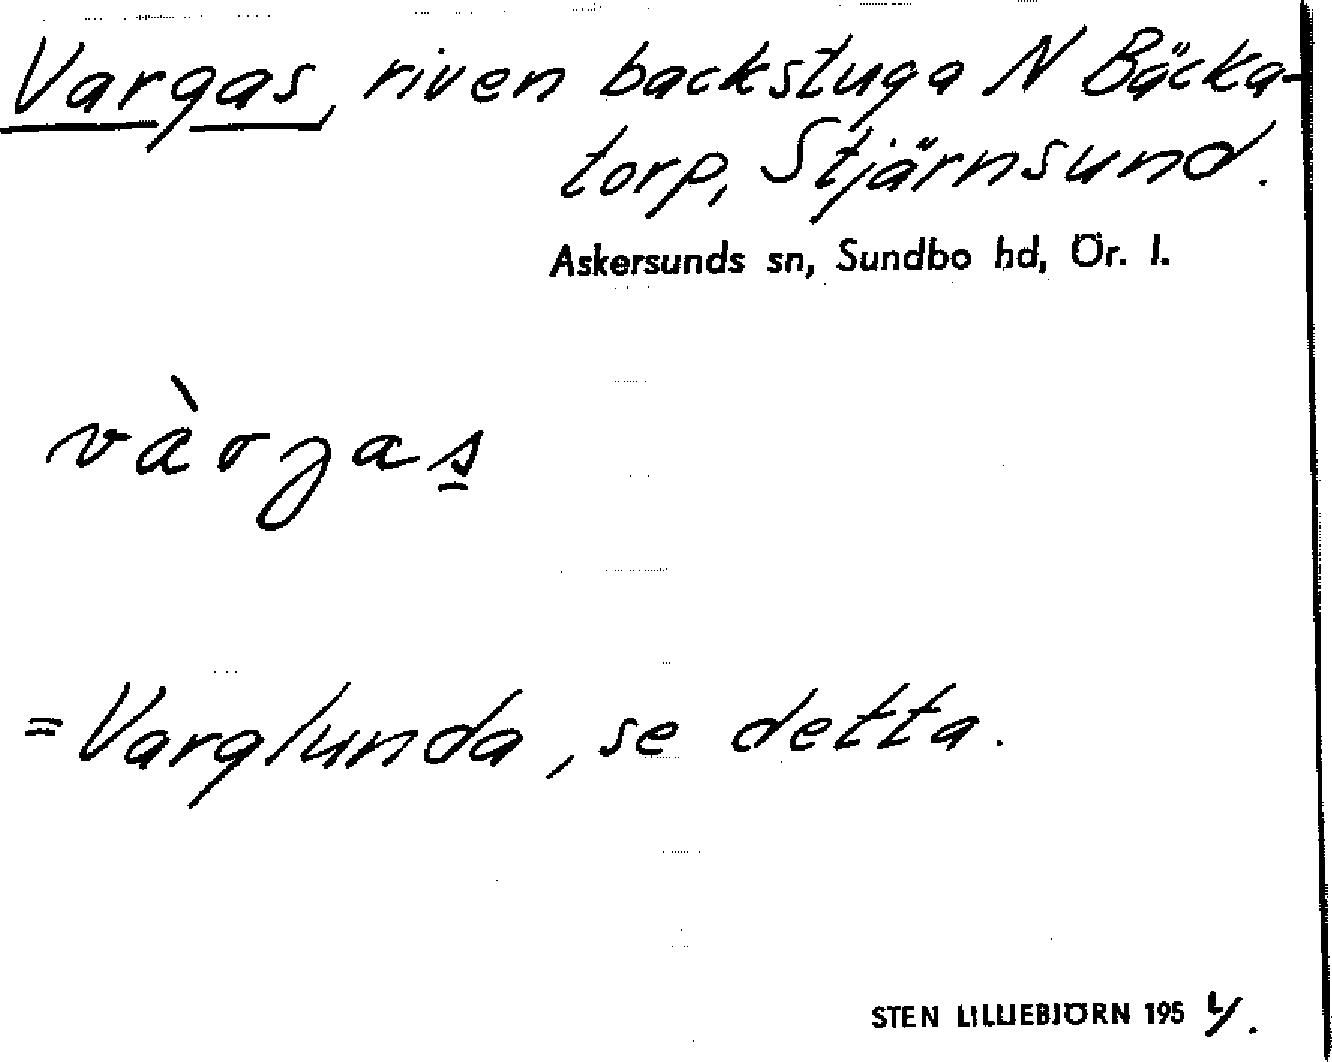 Vargas, riven backstuga N Bäcka-
torp, Stjärnsund.
Askersunds sn, Sundbo hd, Ör. l.
vàrgas
= Varglunda, se detta.
STEN LILLIEBJÖRN 1954.